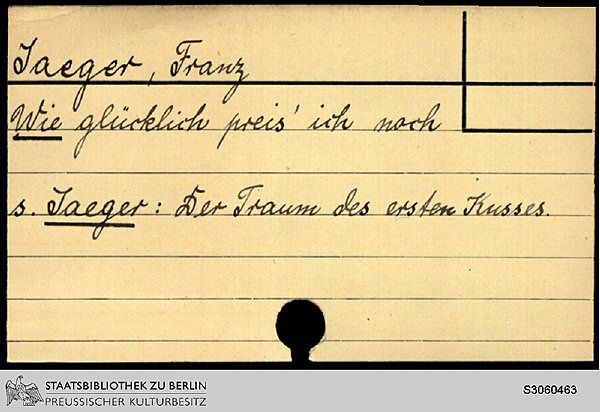 Jaeger, Franz
Wie glücklich preis' ich noch
s. Jaeger: Der Traum des ersten Kusses.
STAATSBIBLIOTHEK ZU BERLIN
PREUSSISCHER KULTURBESITZ
S3060463